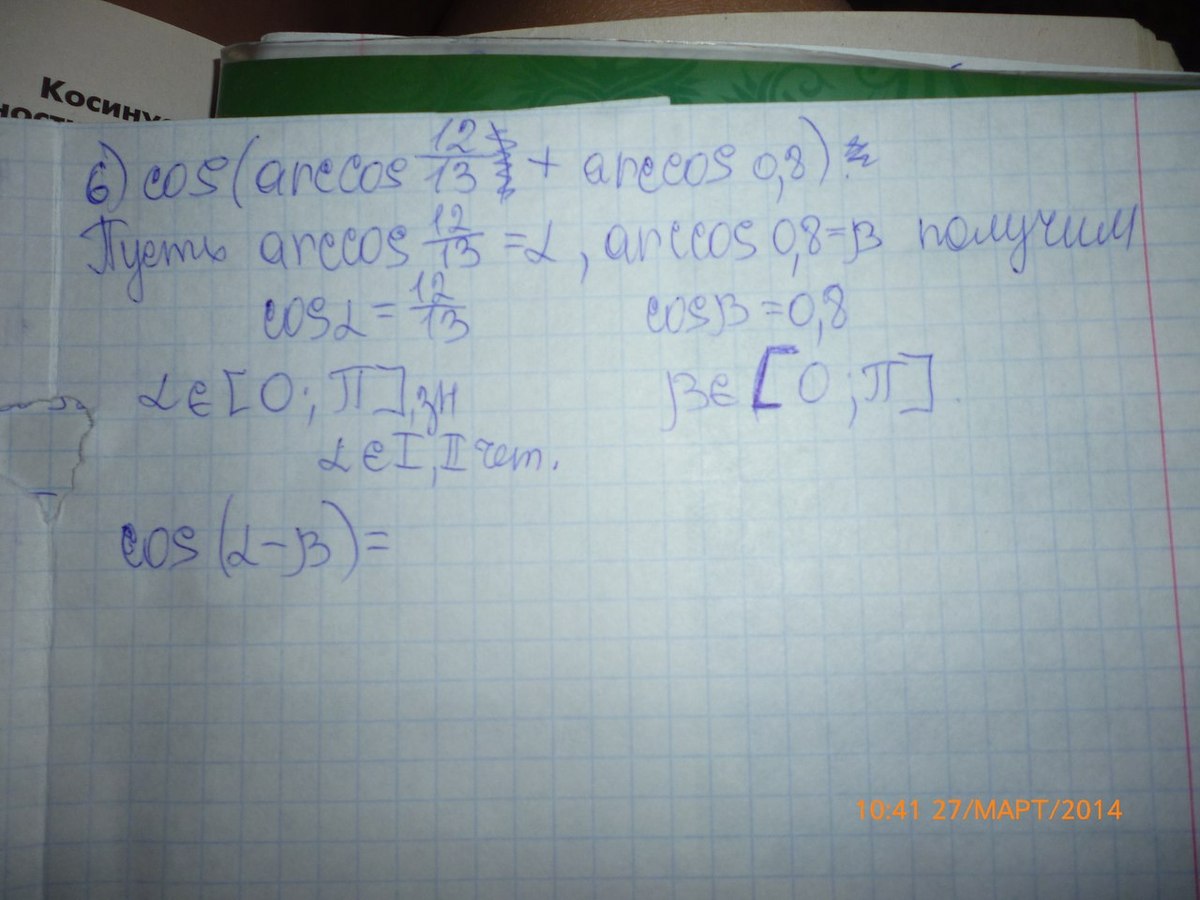 Косину
ност
6) cos(arccos 12/13 + arccos 0,8)
Пусть arccos 12/13 = α, arccos 0,8 = β получим
cosα = 12/13 cosβ = 0,8
α ∈ [0; π], зн β ∈ [0; π].
α ∈ I, II чет.
cos(α - β) =
10:41 27/МАРТ/2014